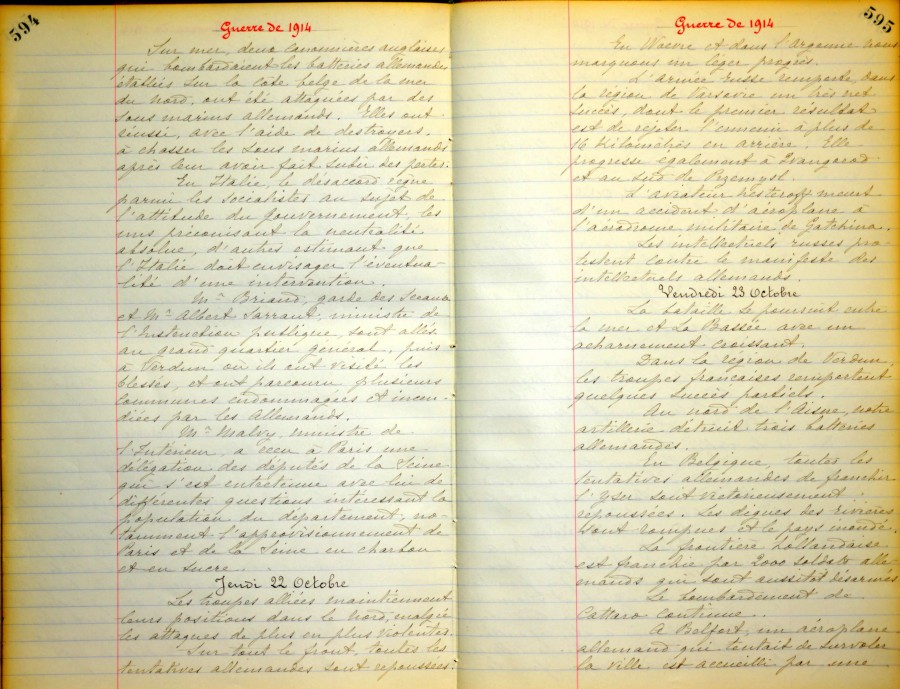 594
Guerre de 1914
Sur mer, deux canonnières anglaises
qui bombardaient les batteries allemandes
établies sur la côte belge de la mer
du Nord, ont été attaquées par des
sous marins allemands. Elles ont
réussi, avec l'aide de destroyers,
à chasser les sous marins allemands
après leur avoir fait subir des pertes.
En Italie, le désaccord règne
parmi les socialistes au sujet de
l'attitude du gouvernement, les
uns préconisant la neutralité
absolue, d'autres estimant que
l'Italie doit envisager l'éventua-
lité d'une intervention.
Mr Briand, garde des Sceaux
et Mr Albert Sarraut, ministre de
l'Instruction publique, sont allés
au grand quartier général, puis
à Verdun où ils ont visité les
blessés, et ont parcouru plusieurs
communes endommagées et incen-
diées par les Allemands.
Mr Malvy, ministre de
l'Intérieur, a reçu à Paris une
délégation des députés de la Seine
qui s'est entretenue avec lui de
différentes questions intéressant la
population du département, no-
tamment l'approvisionnement de
Paris et de la Seine en charbon
et en sucre.
Jeudi 22 Octobre
Les troupes alliées maintiennent
leurs positions dans le Nord, malgré
les attaques de plus en plus violentes.
Sur tout le front, toutes les
tentatives allemandes sont repoussées.
595
Guerre de 1914
En Woëvre et dans l'Argonne nous
marquons un léger progrès.
L'armée russe remporte dans
la région de Varsovie un très net
succès, dont le premier résultat
est de rejeter l'ennemi à plus de
16 kilomètres en arrière. Elle
progresse également à Ivangorod
et au sud de Przemysl.
L'aviateur Nesteroff meurt
d'un accident d'aéroplane à
l'aérodrome militaire de Gatchina.
Les intellectuels russes pro-
testent contre le manifeste des
intellectuels allemands.
Vendredi 23 Octobre
La bataille se poursuit entre
la mer et La Bassée avec un
acharnement croissant.
Dans la région de Verdun,
les troupes françaises remportent
quelques succès partiels.
Au nord de l'Aisne, notre
artillerie détruit trois batteries
allemandes.
En Belgique, toutes les
tentatives allemandes de franchir
l'Yser sont victorieusement
repoussées. Les digues des rivières
sont rompues et le pays inondé.
La frontière hollandaise
est franchie par 2000 soldats alle-
mands qui sont aussitôt désarmés
Le bombardement de
Cattaro continue.
A Belfort, un aéroplane
allemand qui tentait de survoler
la ville est accueilli par une